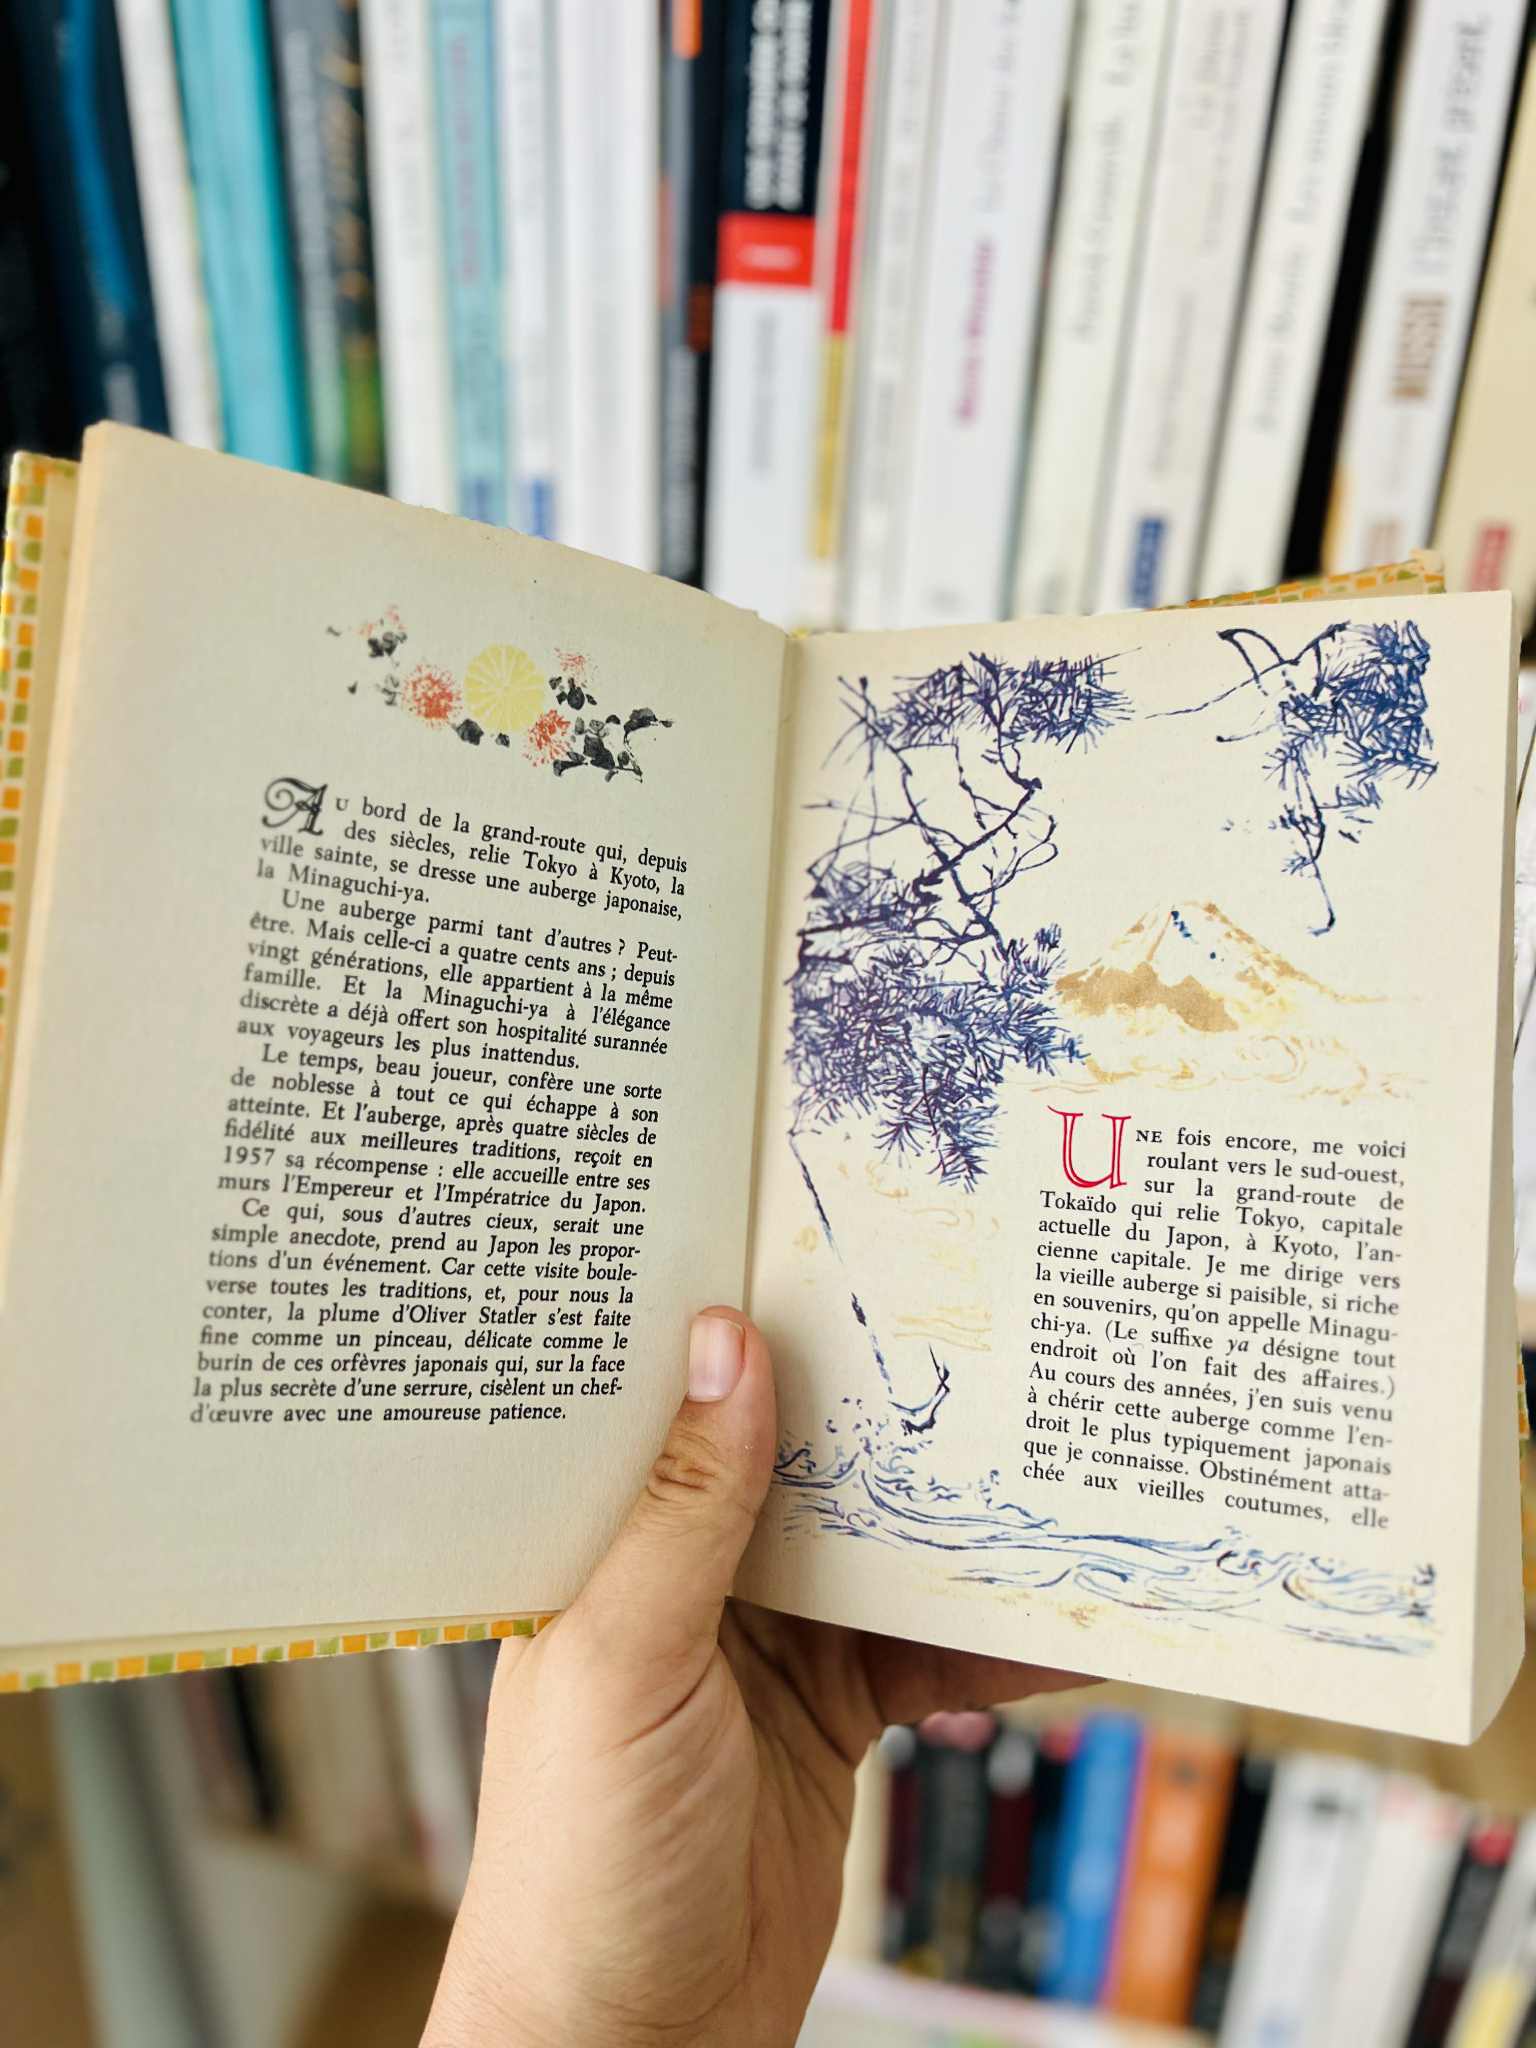 AU bord de la grand-route qui, depuis
des siècles, relie Tokyo à Kyoto, la
ville sainte, se dresse une auberge japonaise,
la Minaguchi-ya.
Une auberge parmi tant d'autres ? Peut-
être. Mais celle-ci a quatre cents ans ; depuis
vingt générations, elle appartient à la même
famille. Et la Minaguchi-ya à l'élégance
discrète a déjà offert son hospitalité surannée
aux voyageurs les plus inattendus.
Le temps, beau joueur, confère une sorte
de noblesse à tout ce qui échappe à son
atteinte. Et l'auberge, après quatre siècles de
fidélité aux meilleures traditions, reçoit en
1957 sa récompense : elle accueille entre ses
murs l'Empereur et l'Impératrice du Japon.
Ce qui, sous d'autres cieux, serait une
simple anecdote, prend au Japon les propor-
tions d'un événement. Car cette visite boule-
verse toutes les traditions, et, pour nous la
conter, la plume d'Oliver Statler s'est faite
fine comme un pinceau, délicate comme le
burin de ces orfèvres japonais qui, sur la face
la plus secrète d'une serrure, cisèlent un chef-
d'œuvre avec une amoureuse patience.
UNE fois encore, me voici
roulant vers le sud-ouest,
sur la grand-route de
Tokaïdo qui relie Tokyo, capitale
actuelle du Japon, à Kyoto, l'an-
cienne capitale. Je me dirige vers
la vieille auberge si paisible, si riche
en souvenirs, qu'on appelle Minagu-
chi-ya. (Le suffixe ya désigne tout
endroit où l'on fait des affaires.)
Au cours des années, j'en suis venu
à chérir cette auberge comme l'en-
droit le plus typiquement japonais
que je connaisse. Obstinément atta-
chée aux vieilles coutumes, elle